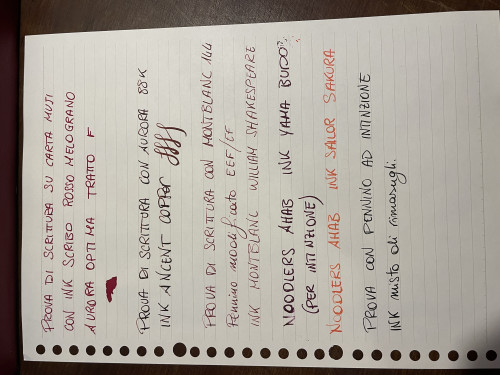 PROVA DI SCRITTURA SU CARTA MUJI
CON INK SCRIBO ROSSO MELOGRANO
AURORA OPTIMA TRATTO F
PROVA DI SCRITTURA CON AURORA 88K
INK ANCENT COPPER ffff
PROVA DI SCRITTURA CON MONTBLANC 144
Pennino modificato EEF/EF
INK MONTBLANC WILLIAM SHAKESPEARE
NOODLERS AHAB INK YAMA BUDO
(PER INTINZIONE)
NOODLERS AHAB INK SAILOR SAKURA
PROVA CON PENNINO AD INTINZIONE
INK misto di rimasugli.